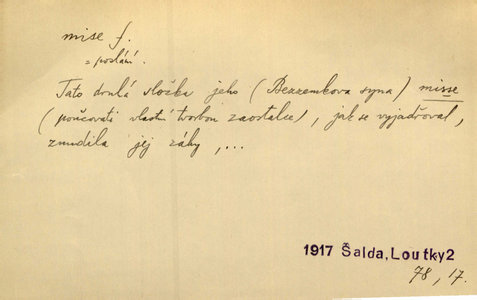 mise f.
= poslání.
Tato druhá složka jeho (Bezzemkova syna) misse
(poučovati vlastní tvorbou zaostalce), jak se vyjadřoval,
znudila jej záhy, ...
1917 Šalda, Loutky2
78, 17.